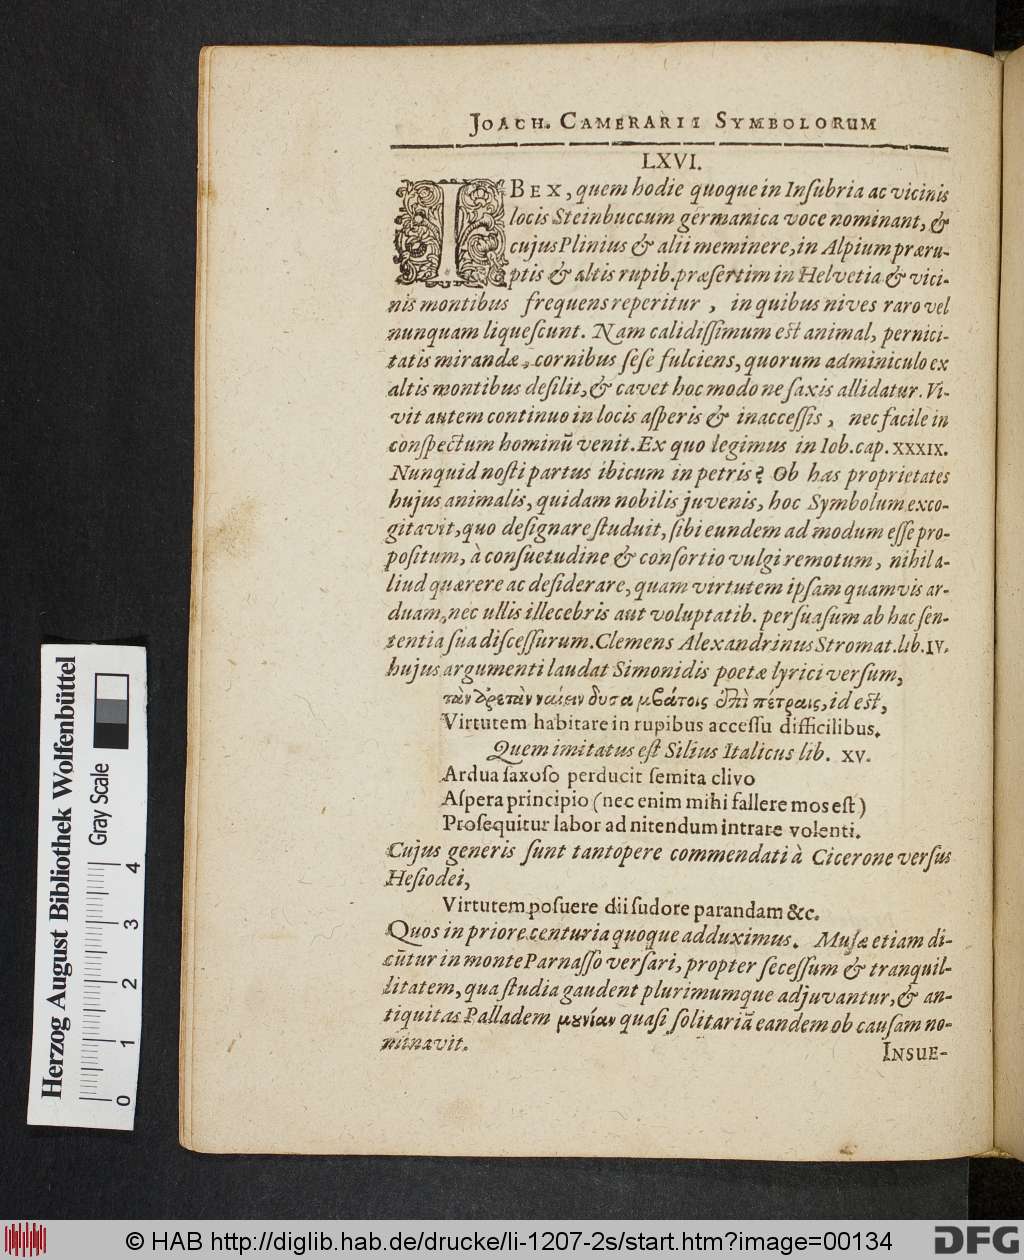 JOACH. CAMERARII SYMBOLORUM
LXVI.
IBEX, quem hodie quoque in Inſubria ac vicinis
locis Steinbuccum germanica voce nominant, &
cujus Plinius & alii meminere, in Alpium præru-
ptis & altis rupib. præſertim in Helvetia & vici-
nis montibus frequens reperitur, in quibus nives raro vel
nunquam liqueſcunt. Nam calidiſſimum est animal, pernici-
tatis mirandæ, cornibus ſeſe fulciens, quorum adminiculo ex
altis montibus deſilit, & cavet hoc modo ne ſaxis allidatur. Vi-
vit autem continuo in locis aſperis & inacceſſis, nec facile in
conſpectum hominū venit. Ex quo legimus in Iob. cap. XXXIX.
Nunquid noſti partus ibicum in petris? Ob has proprietates
hujus animalis, quidam nobilis juvenis, hoc Symbolum exco-
gitavit, quo deſignare ſtuduit, ſibi eundem ad modum eſſe pro-
poſitum, à conſuetudine & conſortio vulgi remotum, nihil a-
liud quærere ac deſiderare, quam virtutem ipſam quamvis ar-
duam, nec ullis illecebris aut voluptatib. perſuaſum ab hac ſen-
tentia ſua diſceſſurum. Clemens Alexandrinus Stromat. lib. IV.
hujus argumenti laudat Simonidis poetæ lyrici verſum,
τὰν ἀρετὰν ναίειν δυσαμβάτοις ἐπὶ πέτραις, id est,
Virtutem habitare in rupibus acceſſu difficilibus.
Quem imitatus eſt Silius Italicus lib. XV.
Ardua ſaxoſo perducit ſemita clivo
Aſpera principio (nec enim mihi fallere mos eſt)
Proſequitur labor ad nitendum intrare volenti.
Cujus generis ſunt tantopere commendati à Cicerone verſus
Heſiodei,
Virtutem poſuere dii ſudore parandam &c.
Quos in priore centuria quoque adduximus. Muſæ etiam di-
cūtur in monte Parnaſſo verſari, propter ſeceſſum & tranquil-
litatem, qua ſtudia gaudent plurimumque adjuvantur, & an-
tiquitas Palladem μουνίαν quaſi ſolitariā eandem ob cauſam no-
minavit.
INSUE-
Herzog August Bibliothek Wolfenbüttel
Gray Scale
0 1 2 3 4
© HAB http://diglib.hab.de/drucke/li-1207-2s/start.htm?image=00134
DFG